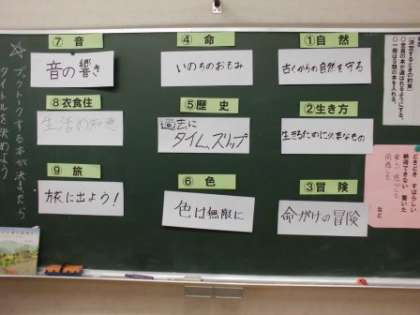 ①自然
古くからの自然を守る
②生き方
生きるために必要なもの
③冒険
命がけの冒険
④命
いのちのおもみ
⑤歴史
過去に
タイムスリップ
⑥色
色は無限に
⑦音
音の響き
⑧衣食住
生活の知恵
⑨旅
旅に出よう!
☆ブックトークする本が決まったら
タイトルを決めよう